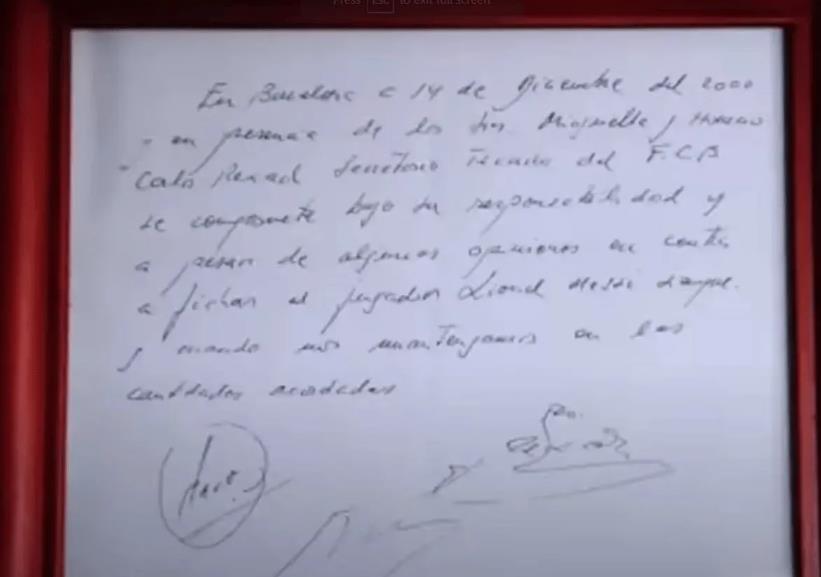 Press Esc to exit full screen
En Barcelona a 14 de Diciembre del 2000
y en presencia de los Srs. Minguella y Horacio
Carlos Rexach Secretario Técnico del F.C.B
se compromete bajo su responsabilidad y
a pesar de algunas opiniones en contra
a fichar al jugador Lionel Messi siempre
y cuando nos mantengamos en las
cantidades acordadas